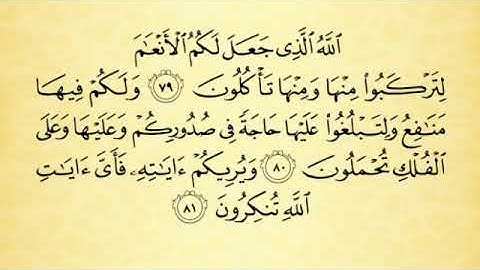 ٱللَّهُ ٱلَّذِى جَعَلَ لَكُمُ ٱلْأَنْعَٰمَ
لِتَرْكَبُوا۟ مِنْهَا وَمِنْهَا تَأْكُلُونَ ٧٩ وَلَكُمْ فِيهَا
مَنَٰفِعُ وَلِتَبْلُغُوا۟ عَلَيْهَا حَاجَةً فِى صُدُورِكُمْ وَعَلَيْهَا وَعَلَى
ٱلْفُلْكِ تُحْمَلُونَ ٨٠ وَيُرِيكُمْ ءَايَٰتِهِۦ فَأَىَّ ءَايَٰتِ
ٱللَّهِ تُنكِرُونَ ٨١